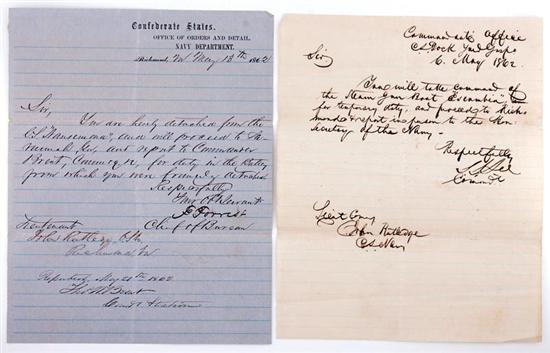 Confederate States.
OFFICE OF ORDERS AND DETAIL,
NAVY DEPARTMENT.
Richmond, Va May 13th 1862
Sir,
You are hereby detached from the
C.S. and will proceed to
and report to Commander
for duty in the Battery
from which you were formerly detached
Respectfully
Your Obt Servant
F Forrest
Chief of Bureau
Lieutenant
John Rutledge C.S.N.
Richmond Va
Reported, May 21st 1862
Tho W Brent
Comdr Station
Commandants Office
C.S. Dock Yard
6. May 1862
Sir
You will take command of
the Steam Gun Boat
for temporary duty, and proceed to Rich-
mond & report in person to the Hon.
Secretary of the Navy.
Respectfully
Lee
Commdt
Lieut Comg
John Rutledge
C.S. Navy